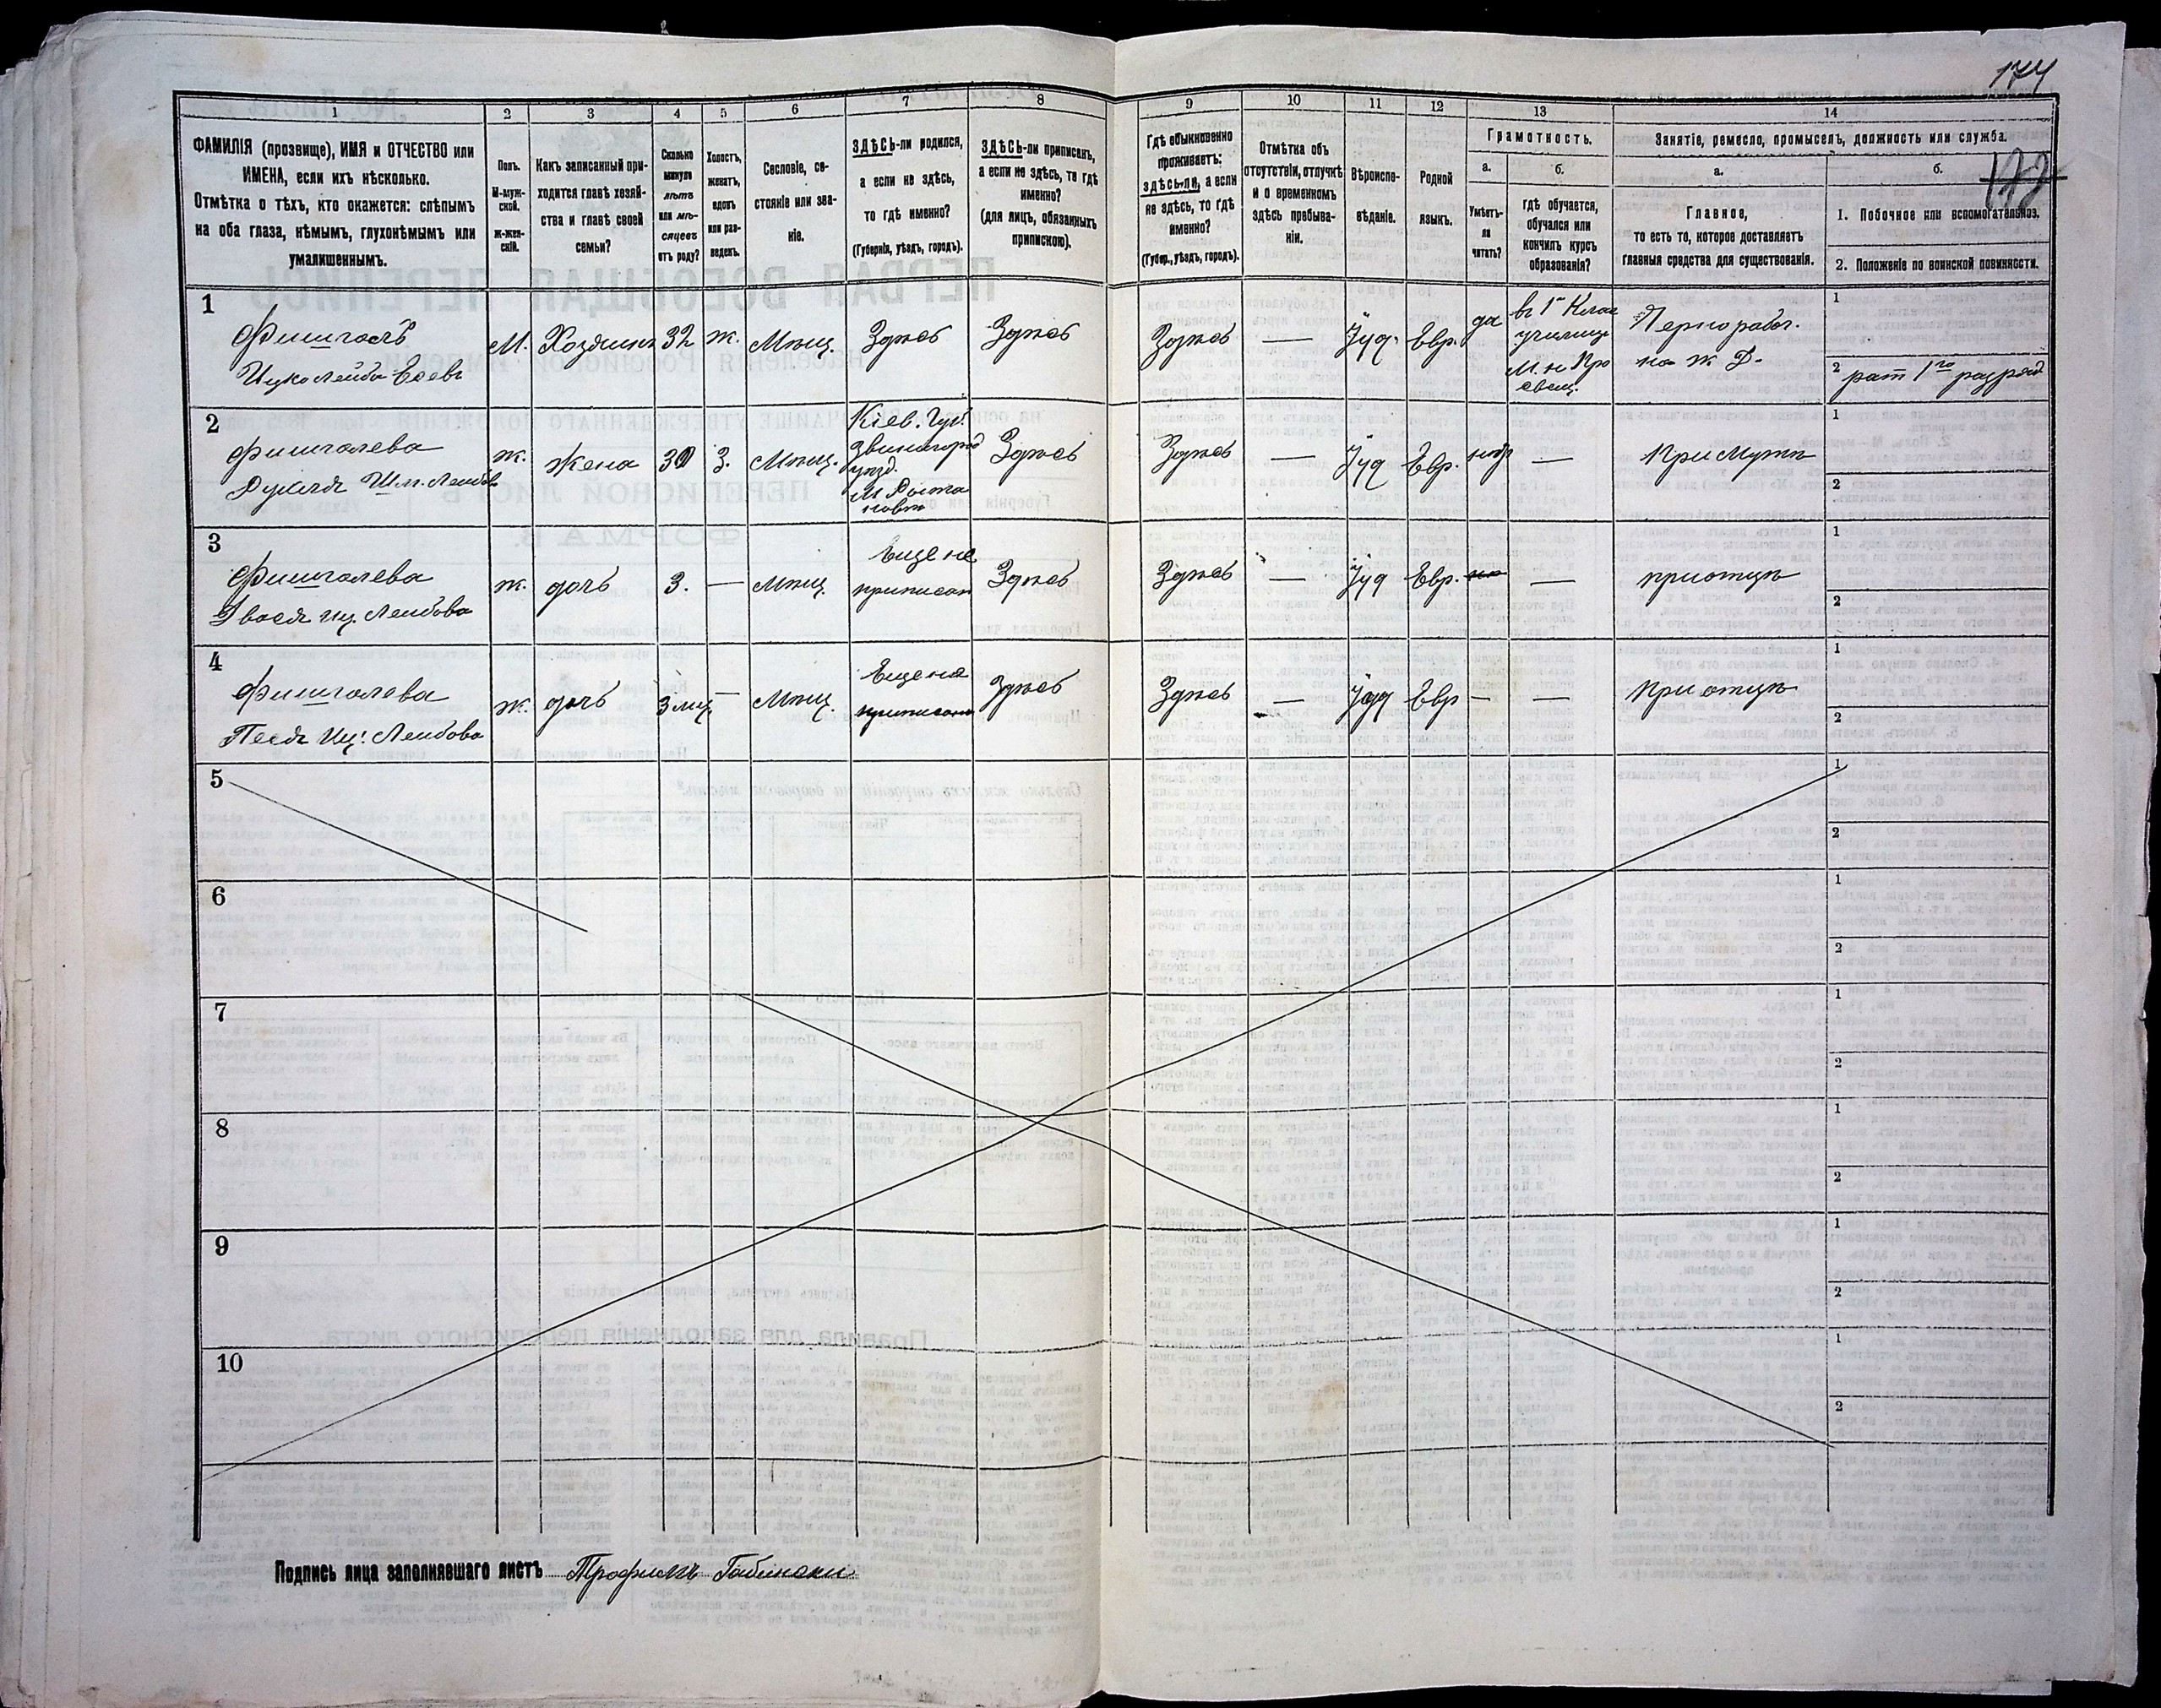 174
1 2 3 4 5 6 7 8 9 10 11 12 13 14
ФАМИЛІЯ (прозвище), ИМЯ и ОТЧЕСТВО или
ИМЕНА, если ихъ нѣсколько.
Отмѣтка о тѣхъ, кто окажется: слѣпымъ
на оба глаза, нѣмымъ, глухонѣмымъ или
умалишеннымъ.
Полъ.
М-муж-
ской.
ж-жен-
скій.
Какъ записанный при-
ходится главѣ хозяй-
ства и главѣ своей
семьи?
Сколько
минуло
лѣтъ
или мѣ-
сяцевъ
отъ роду?
Холостъ,
женатъ,
вдовъ
или раз-
веденъ.
Сословіе, со-
стояніе или зва-
ніе.
ЗДѢСЬ-ли родился,
а если не здѣсь,
то гдѣ именно?
(Губернія, уѣздъ, городъ).
ЗДѢСЬ-ли приписанъ,
а если не здѣсь, то гдѣ
именно?
(для лицъ, обязанныхъ
припискою).
Гдѣ обыкновенно
проживаетъ:
здѣсь-ли, а если
не здѣсь, то гдѣ
именно?
(Губер., уѣздъ, городъ).
Отмѣтка объ
отсутствіи, отлучкѣ
и о временномъ
здѣсь пребыва-
ніи.
Вѣроиспо-
вѣданіе.
Родной
языкъ.
Грамотность.
а.
Умѣетъ-
ли
читать?
б.
гдѣ обучается,
обучался или
кончилъ курсъ
образованія?
Занятіе, ремесло, промыселъ, должность или служба.
а.
Главное,
то есть то, которое доставляетъ
главныя средства для существованія.
б.
1. Побочное или вспомогательное.
2. Положеніе по воинской повинности.
1
Фишгаль
Ицко Лейба Евевъ
М.
Хозяинъ
32
ж.
Мѣщ.
Здѣсь
Здѣсь
Здѣсь
—
Іуд.
Евр.
да
училищ
М. н Про
свещ.
Чернорабоч.
на Ж Д.
1
2 рат 1го разряд
2
Фишгалева
ж.
жена
30
З.
Мѣщ.
Кіев. Губ.
Звинигород
уѣзд.
Здѣсь
Здѣсь
—
Іуд
Евр.
—
При мужѣ
1
2
3
Фишгалева
Двося Иц. Лейбова
ж.
дочь
3.
—
Мѣщ.
Еще не
приписан
Здѣсь
Здѣсь
—
Іуд
Евр.
—
при отцѣ
1
2
4
Фишгалева
Песя Иц. Лейбова
ж.
дочь
3 мц.
—
Мѣщ.
Еще не
приписан
Здѣсь
Здѣсь
—
Іуд
Евр
—
—
При отцѣ
1
2
5
1
2
6
1
2
7
1
2
8
1
2
9
1
2
10
1
2
Подпись лица заполнявшаго листъ Трофимъ Габински